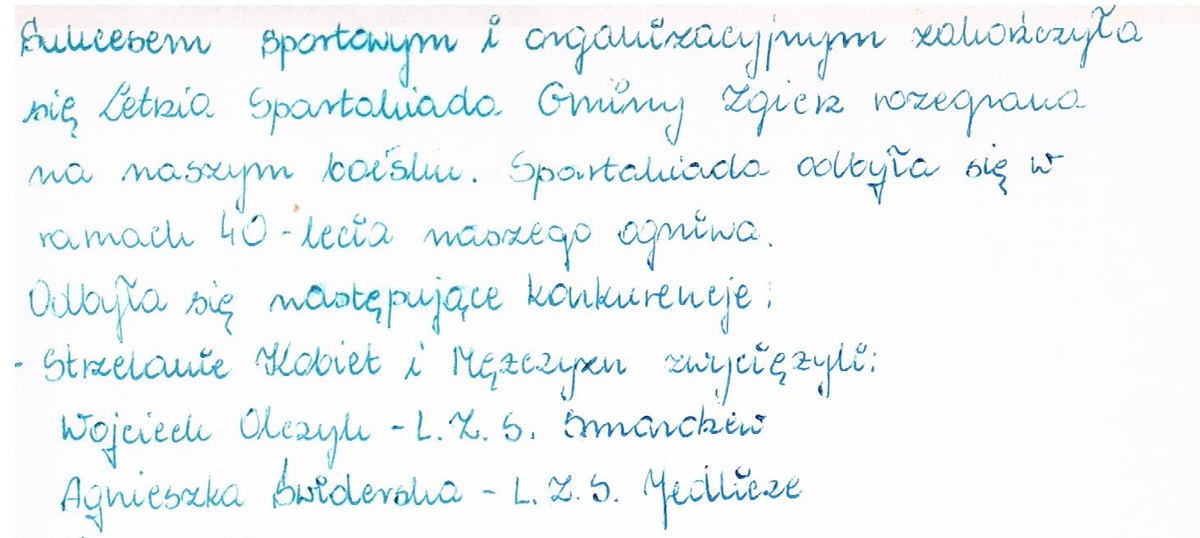 Sukcesem sportowym i organizacyjnym zakończyła
się Letnia Spartakiada Gminy Zgierz rozegrana
na naszym boisku. Spartakiada odbyła się w
ramach 40-lecia naszego ogniwa.
Odbyła się następujące konkurencje:
- Strzelanie Kobiet i Mężczyzn zwyciężyli:
Wojciech Olczyk - L.Z.S. Smardzew
Agnieszka Świderska - L.Z.S. Jedlicze